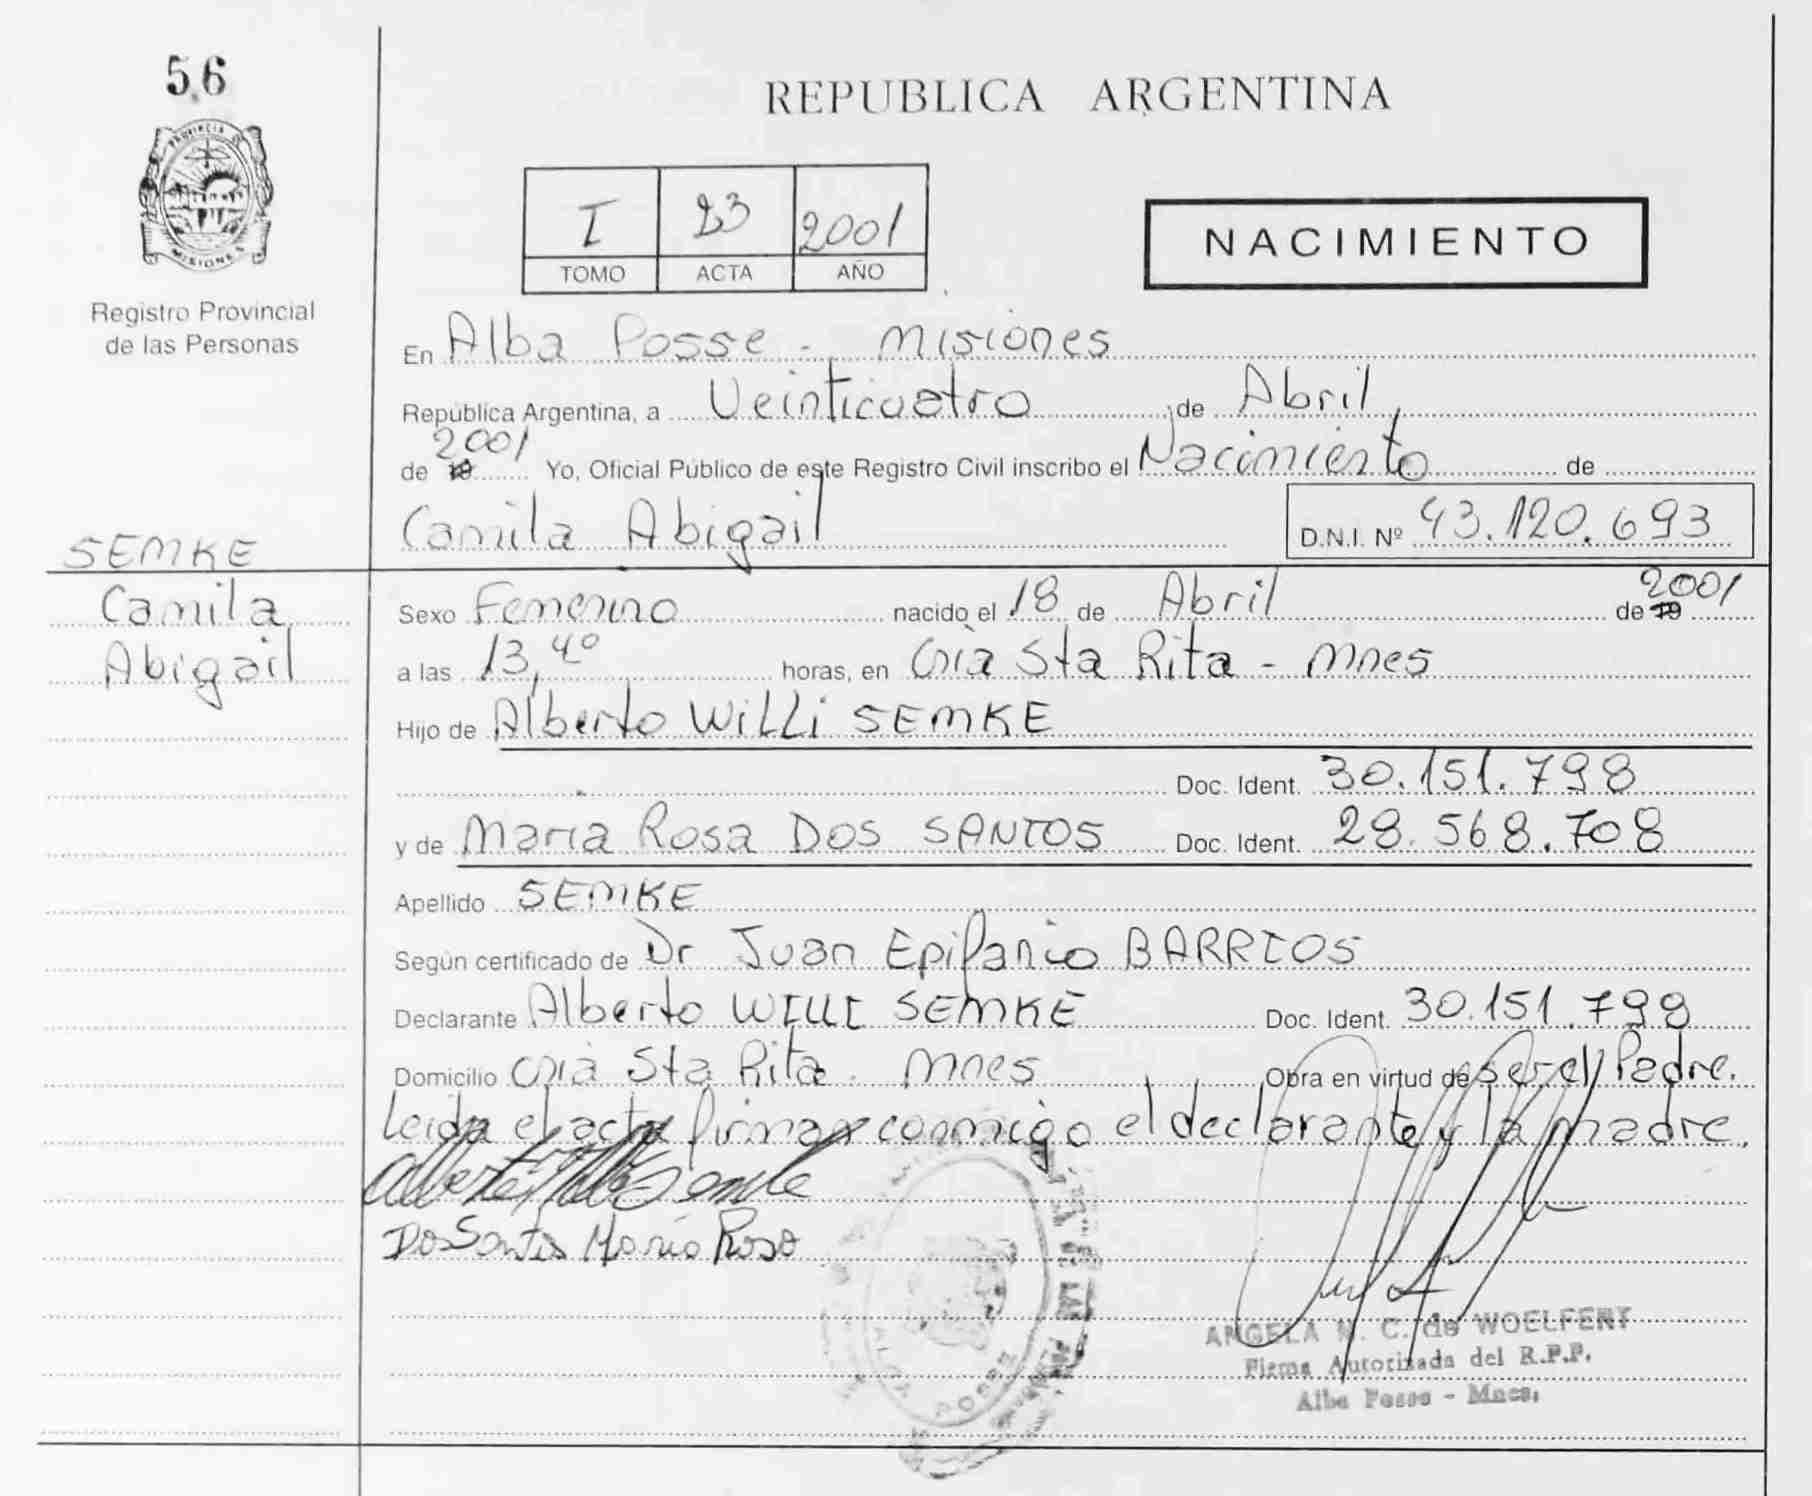 56
PROVINCIA DE
MISIONES
Registro Provincial
de las Personas
REPUBLICA ARGENTINA
I 23 2001
TOMO ACTA AÑO
NACIMIENTO
En Alba Posse - Misiones
República Argentina, a Veinticuatro de Abril
de 19 2001 Yo, Oficial Público de este Registro Civil inscribo el Nacimiento de
Camila Abigail D.N.I. Nº 43.120.693
SEMKE
Camila
Abigail
Sexo Femenino nacido el 18 de Abril de 19 2001
a las 13,40 horas, en Cnia Sta Rita - Mnes
Hijo de Alberto WiLLi SEMKE
Doc. Ident. 30.151.798
y de Maria Rosa DOS SANTOS Doc. Ident. 28.568.708
Apellido SEMKE
Según certificado de Dr Juan Epifanio BARRIOS
Declarante Alberto WILLI SEMKE Doc. Ident. 30.151.798
Domicilio Cnia Sta Rita. Mnes Obra en virtud de Ser el Padre.
Leida el acta firman conmigo el declarante y la madre.
Alberto Semke
Dos Santos Maria Rosa
ALBA POSSE
ANGELA N. C. de WOELFERT
Firma Autorizada del R.P.P.
Alba Posse - Mnes.